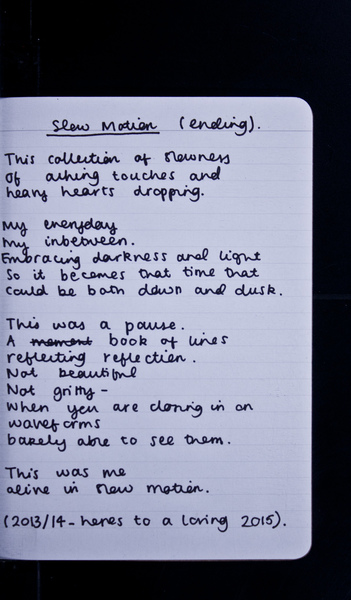 Slow Motion (ending).
This collection of slowness
Of aching touches and
heavy hearts dropping.
My everyday
My inbetween.
Embracing darkness and light
So it becomes that time that
could be both dawn and dusk.
This was a pause.
A moment book of lines
reflecting reflection.
Not beautiful
Not gritty -
When you are closing in on
waveforms
barely able to see them.
This was me
alive in slow motion.
(2013/14 - heres to a loving 2015).